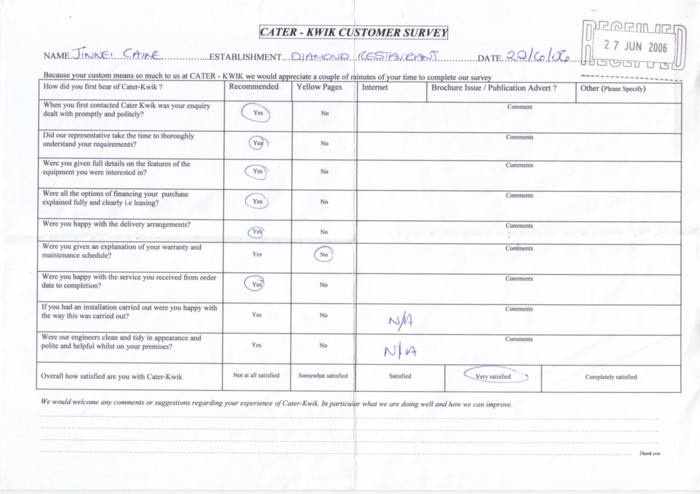 CATER - KWIK CUSTOMER SURVEY
RECEIVED
27 JUN 2006
NAME JINNEI CAINE ESTABLISHMENT DIAMOND RESTAURANT DATE 22/6/06
Because your custom means so much to us at CATER - KWIK we would appreciate a couple of minutes of your time to complete our survey
How did you first hear of Cater-Kwik ? Recommended Yellow Pages Internet Brochure Issue / Publication Advert ? Other (Please Specify)
When you first contacted Cater Kwik was your enquiry Comment
dealt with promptly and politely? Yes No
Did our representative take the time to thoroughly Comments
understand your requirements? Yes No
Were you given full details on the features of the Comments
equipment you were interested in? Yes No
Were all the options of financing your purchase Comments
explained fully and clearly i.e leasing? Yes No
Were you happy with the delivery arrangements? Yes No Comments
Were you given an explanation of your warranty and Comments
maintenance schedule? Yes No
Were you happy with the service you received from order Comments
date to completion? Yes No
If you had an installation carried out were you happy with Comments
the way this was carried out? Yes No N/A
Were our engineers clean and tidy in appearance and Comments
polite and helpful whilst on your premises? Yes No N/A
Overall how satisfied are you with Cater-Kwik Not at all satisfied Somewhat satisfied Satisfied Very satisfied Completely satisfied
We would welcome any comments or suggestions regarding your experience of Cater-Kwik. In particular what we are doing well and how we can improve.
Thank you